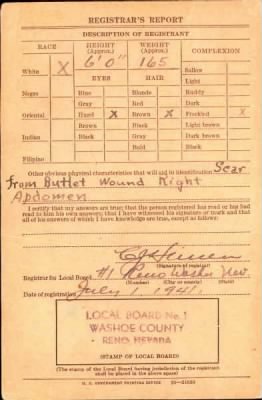 REGISTRAR'S REPORT
DESCRIPTION OF REGISTRANT
RACE HEIGHT (Approx.) WEIGHT (Approx.) COMPLEXION
White X 6' 0" 165 Sallow
EYES HAIR Light
Negro Blue Blonde Ruddy
Gray Red Dark
Oriental Hazel X Brown X Freckled X
Brown Black Light brown
Indian Black Gray Dark brown
Bald Black
Filipino
Other obvious physical characteristics that will aid in identification Scar
from Bullet Wound Right
Abdomen
I certify that my answers are true; that the person registered has read or has had
read to him his own answers; that I have witnessed his signature or mark and that
all of his answers of which I have knowledge are true, except as follows:
(Signature of registrar)
Registrar for Local Board #1 Reno Washoe Nev.
(Number) (City or county) (State)
Date of registration July 1, 1941.
LOCAL BOARD No. 1
WASHOE COUNTY
RENO NEVADA
(STAMP OF LOCAL BOARD)
(The stamp of the Local Board having jurisdiction of the registrant
shall be placed in the above space)
U. S. GOVERNMENT PRINTING OFFICE